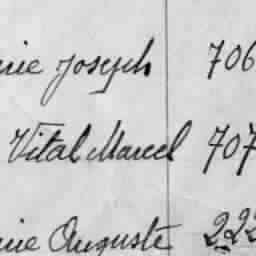 Joseph 706
Vital Marcel 707
Auguste 222